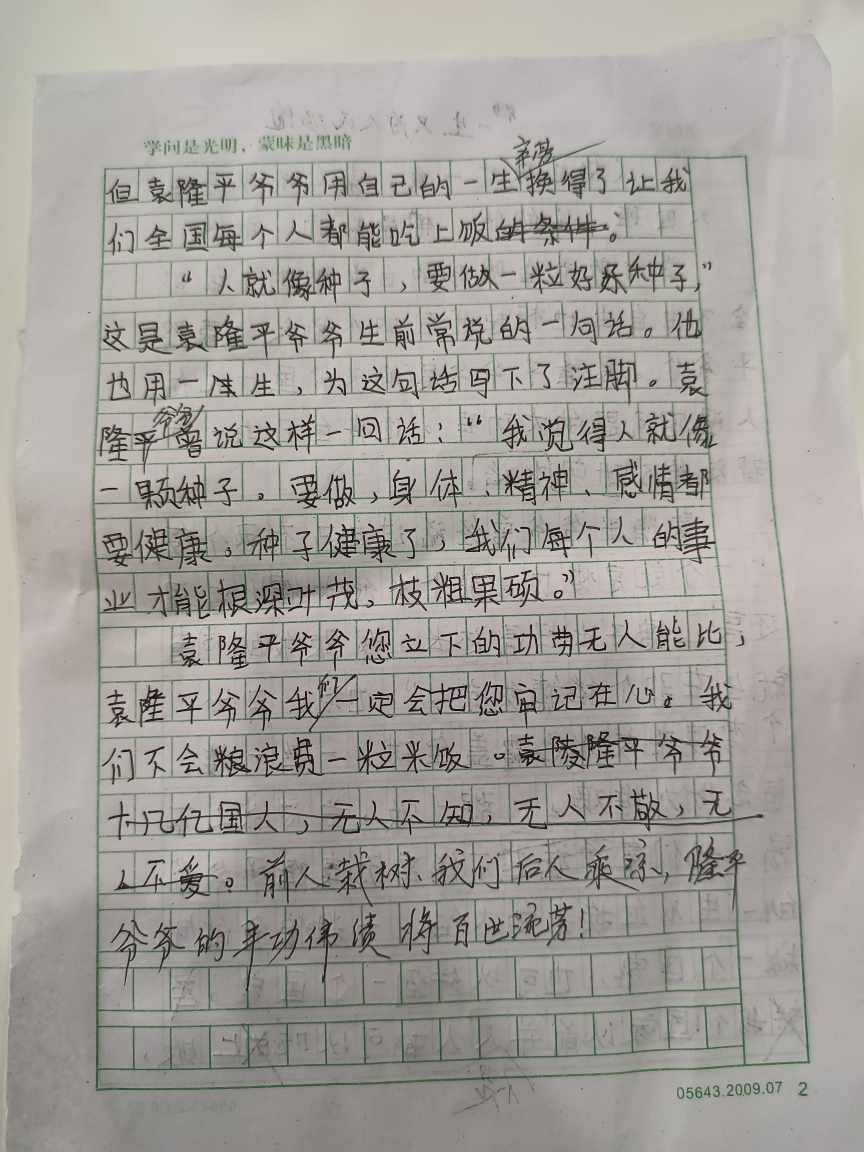 学问是光明，蒙昧是黑暗
辛劳
但袁隆平爷爷用自己的一生换得了让我
们全国每个人都能吃上饭的条件。
“人就像种子，要做一粒好种子，”
这是袁隆平爷爷生前常说的一句话。他
也用一生，为这句话写下了注脚。袁
爷爷
隆平曾说这样一回话：“我觉得人就像
一颗种子。要做，身体、精神、感情都
要健康。种子健康了，我们每个人的事
业才能根深叶茂，枝粗果硕。”
袁隆平爷爷您立下的功劳无人能比，
袁隆平爷爷我们一定会把您牢记在心。我
们不会浪费一粒米饭。袁隆平爷爷
十几亿国人，无人不知，无人不敬，无
人不爱。前人栽树、我们后人乘凉，隆平
爷爷的丰功伟绩将百世流芳！
05643.2009.07 2